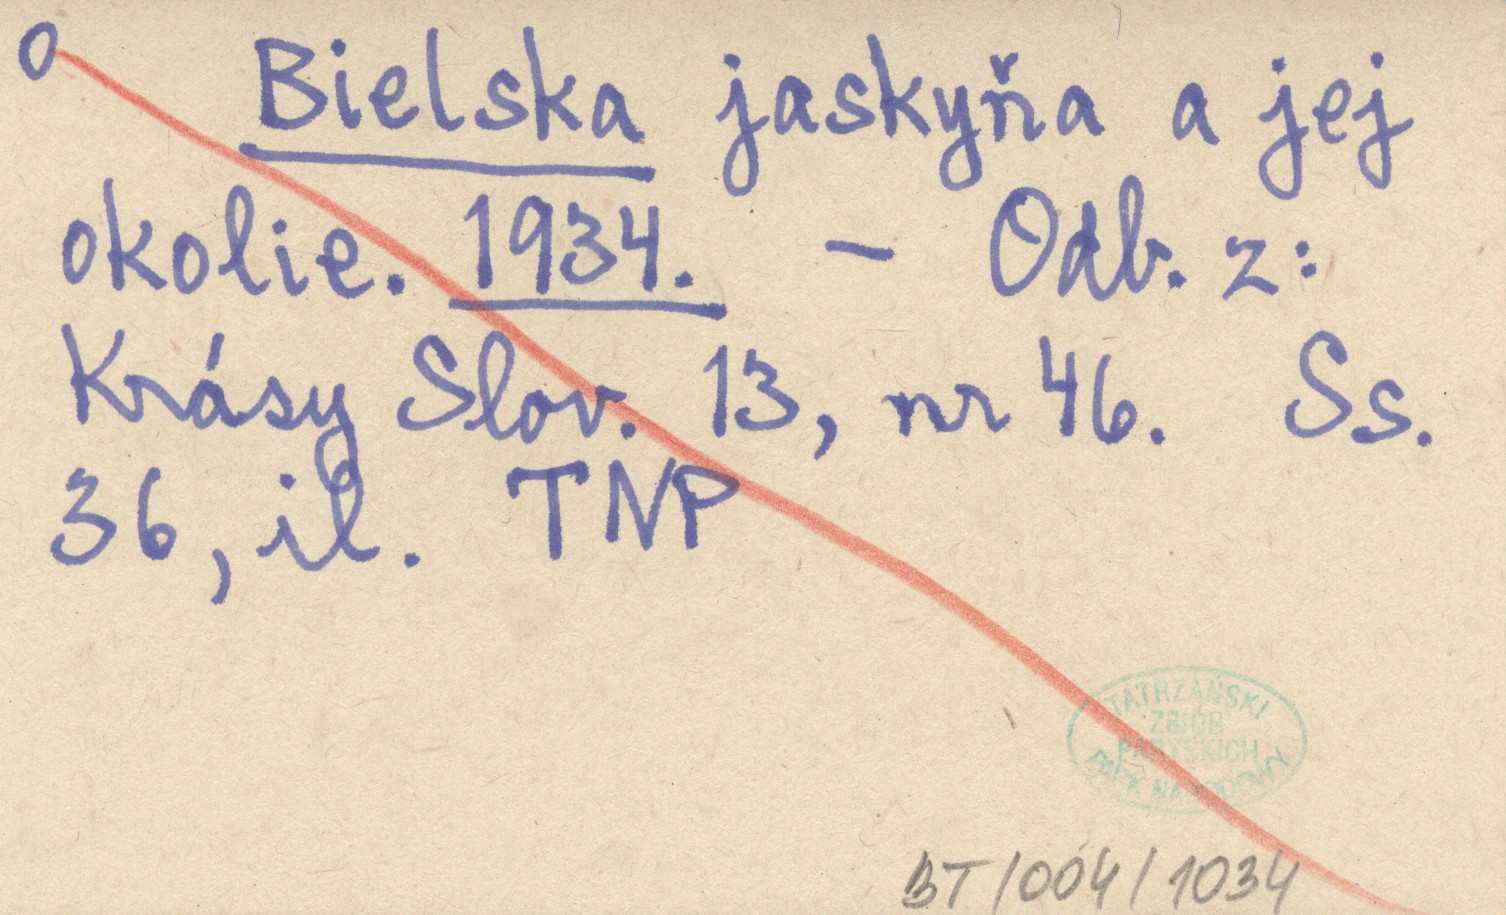 O
Bielska jaskyňa a jej
okolie. 1934. – Odb. z:
Krásy Slov. 13, nr 46. Ss.
36, il. TNP
TATRZAŃSKI
ZBIÓR
PARYSKICH
PARK NARODOWY
BT/004/1034